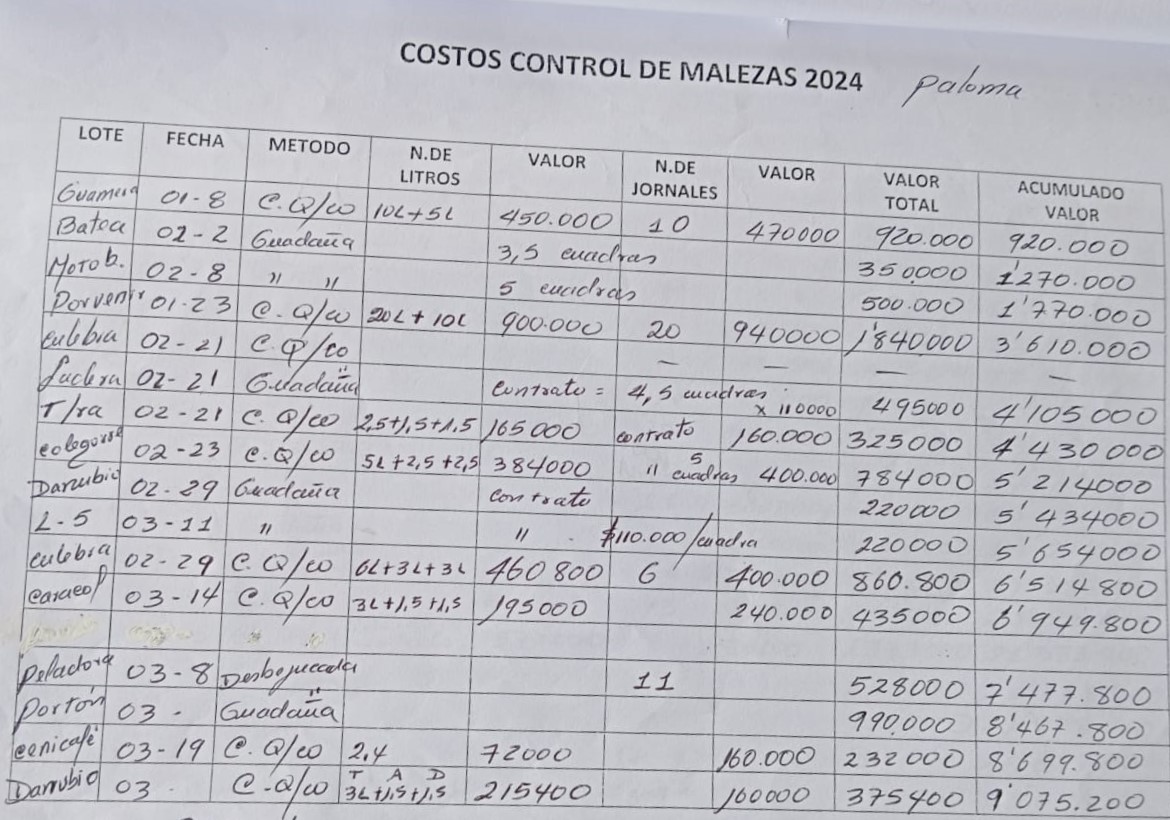 COSTOS CONTROL DE MALEZAS 2024 paloma
LOTE FECHA METODO N.DE LITROS VALOR N.DE JORNALES VALOR VALOR TOTAL ACUMULADO VALOR
01-8 C.Q/co 10L+5L 450.000 10 470000 920.000 920.000
Batea 02-2 Guadaña 3,5 cuadras 350.000 1'270.000
Moro b. 02-8 " " 5 cuadras 500.000 1'770.000
Porvenir 01-23 C.Q/co 20L + 10L 900.000 20 940000 1'840000 3'610.000
culebra 02-21 C.Q/co — — — —
02-21 Guadaña contrato = 4,5 cuadras x 110000 495000 4'105000
T/ra 02-21 C.Q/co 2,5+1,5+1,5 165000 contrato 160.000 325000 4'430000
02-23 C.Q/co 5L+2,5+2,5 384000 " 5 cuadras 400.000 784000 5'214000
Danubio 02-29 Guadaña contrato 220000 5'434000
L-5 03-11 " " $110.000/cuadra 220000 5'654000
culebra 02-29 C.Q/co 6L+3L+3L 460800 6 400.000 860.800 6'514800
caracol 03-14 C.Q/co 3L+1,5+1,5 195000 240.000 435000 6'949.800
03-8 11 528000 7'477.800
Portón 03- Guadaña 990.000 8'467.800
cenicafé 03-19 C.Q/co 2,4 72000 160.000 232000 8'699.800
Danubio 03. C.Q/co T A D 3L+1,5+1,5 215400 160000 375400 9'075.200